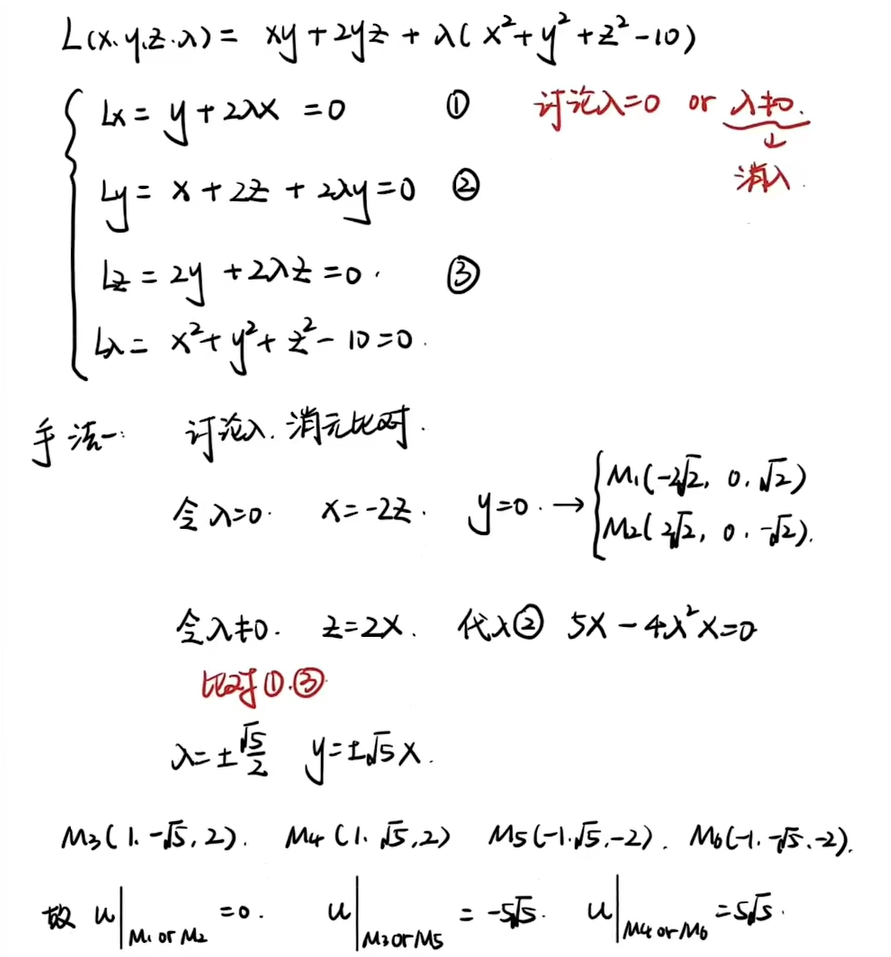 L(x.y.z.λ) = xy + 2yz + λ(x²+y²+z²-10)
Lx = y + 2λx = 0 ① 讨论λ=0 or λ≠0.
↓
Ly = x + 2z + 2λy = 0 ② 消λ.
Lz = 2y + 2λz = 0. ③
Lλ = x²+y²+z²-10=0.
手法一: 讨论λ.消元比对.
令λ=0. x=-2z. y=0. → M₁(-2√2, 0. √2)
M₂(2√2, 0. -√2).
令λ≠0. z=2x. 代入② 5x-4λ²x=0
比对①.③.
λ=±√5/2 y=±√5x.
M₃(1. -√5, 2). M₄(1. √5,2) M₅(-1.√5.-2). M₆(-1. -√5.-2).
故 u|M₁ or M₂ =0. u|M₃orM₅ = -5√5. u|M₄orM₆ =5√5.